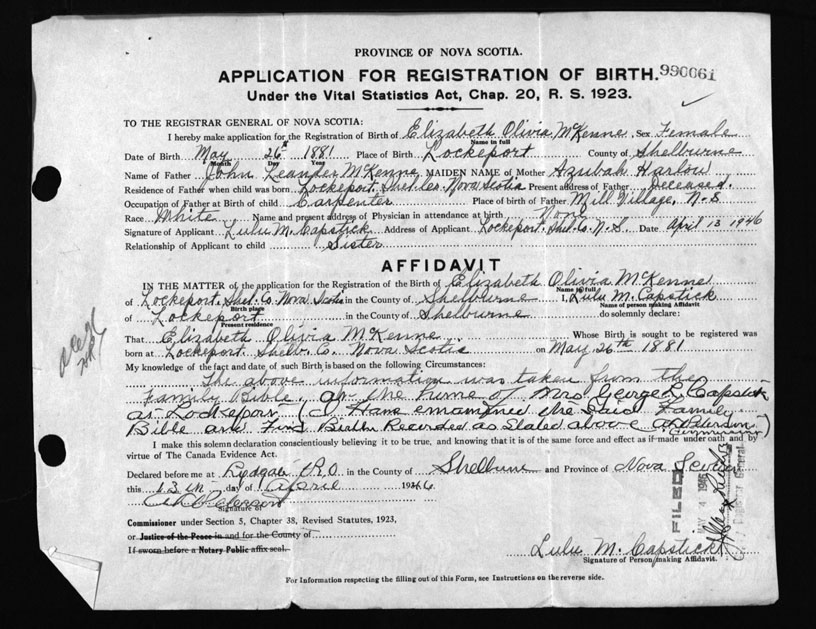 PROVINCE OF NOVA SCOTIA.
APPLICATION FOR REGISTRATION OF BIRTH. 990061
Under the Vital Statistics Act, Chap. 20, R. S. 1923.
TO THE REGISTRAR GENERAL OF NOVA SCOTIA:
I hereby make application for the Registration of Birth of Elizabeth Olivia McKenne, Sex Female
Name in full
Date of Birth May 26th 1881 Place of Birth Lockeport County of Shelburne
Month Day Year
Name of Father John Leander McKenne MAIDEN NAME of Mother Azubah Harlow
Residence of Father when child was born Lockeport, Shel. Co. Nova Scotia Present address of Father Deceased.
Occupation of Father at Birth of child Carpenter Place of birth of Father Mill Village, N.S
Race White Name and present address of Physician in attendance at birth None
Signature of Applicant Lulu M. Capstick Address of Applicant Lockeport. Shel. Co. N.S. Date April 13 1946
Relationship of Applicant to child Sister
AFFIDAVIT
IN THE MATTER of the application for the Registration of the Birth of Elizabeth Olivia McKenne
Name in full
of Lockeport. Shel. Co. Nova Scotia in the County of Shelburne I, Lulu M. Capstick
Birth place Name of person making Affidavit
of Lockeport in the County of Shelburne do solemnly declare:
Present residence
That Elizabeth Olivia McKenne Whose Birth is sought to be registered was
born at Lockeport Shelb. Co. Nova Scotia on May 26th 1881
My knowledge of the fact and date of such Birth is based on the following Circumstances:
The above information was taken from the
Family Bible, at the home of Mrs George R Capstick
at Lockeport (I Have examained the Said Family
Bible and Find Birth Recorded as Stated above
I make this solemn declaration conscientiously believing it to be true, and knowing that it is of the same force and effect as if made under oath and by
virtue of The Canada Evidence Act.
Declared before me at Lydgate P.O in the County of Shelburne and Province of Nova Scotia
this 13 th day of April 1946
Signature of
Commissioner under Section 3, Chapter 38, Revised Statutes, 1923,
or Justice of the Peace in and for the County of
If sworn before a Notary Public affix seal.
FILED
Lulu M. Capstick
Signature of Person making Affidavit.
For Information respecting the filling out of this Form, see Instructions on the reverse side.